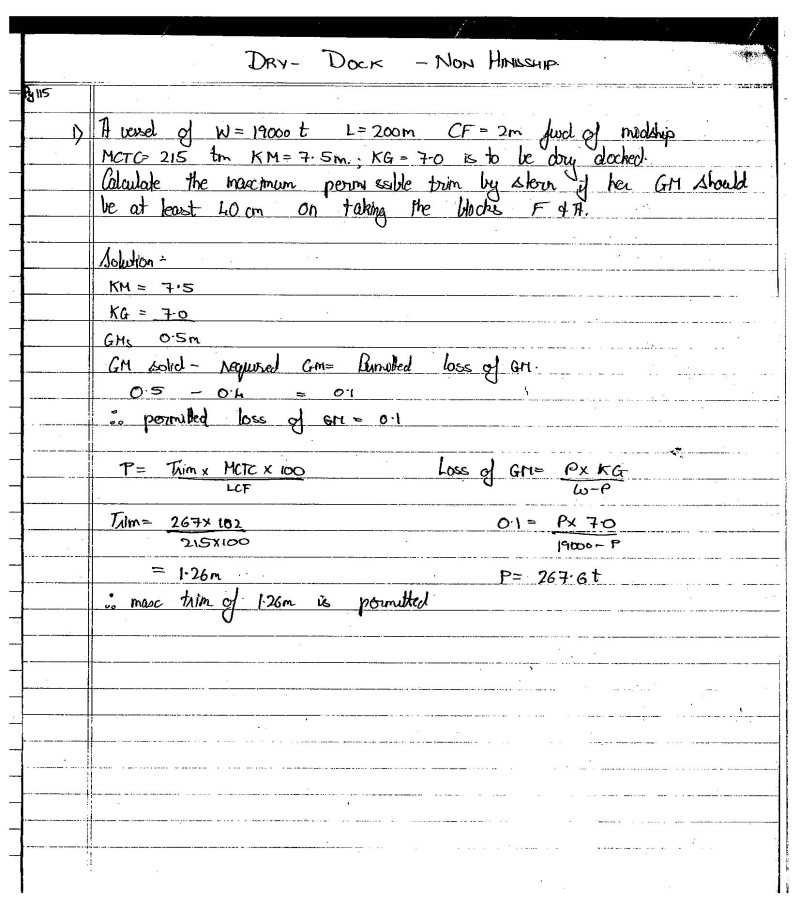 DRY- DOCK - NON HINDSHIP.
Pg 115
1) A vessel of W = 19000 t L = 200m CF = 2m fwd of midship
MCTC= 215 tm KM = 7.5m.; KG = 7.0 is to be dry docked.
Calculate the maximum permissible trim by stern if her GM should
be at least 40 cm on taking the blocks F & A.
Solution :-
KM = 7.5
KG = 7.0
GMs 0.5m
GM solid - required GM= Permitted loss of GM.
0.5 - 0.4 = 0.1
∴ permitted loss of GM = 0.1
P= Trim x MCTC x 100 Loss of GM= P x KG
LCF W-P
Trim= 267 x 102 0.1 = P x 7.0
215x100 19000 - P
= 1.26m P= 267.6t
∴ max trim of 1.26m is permitted